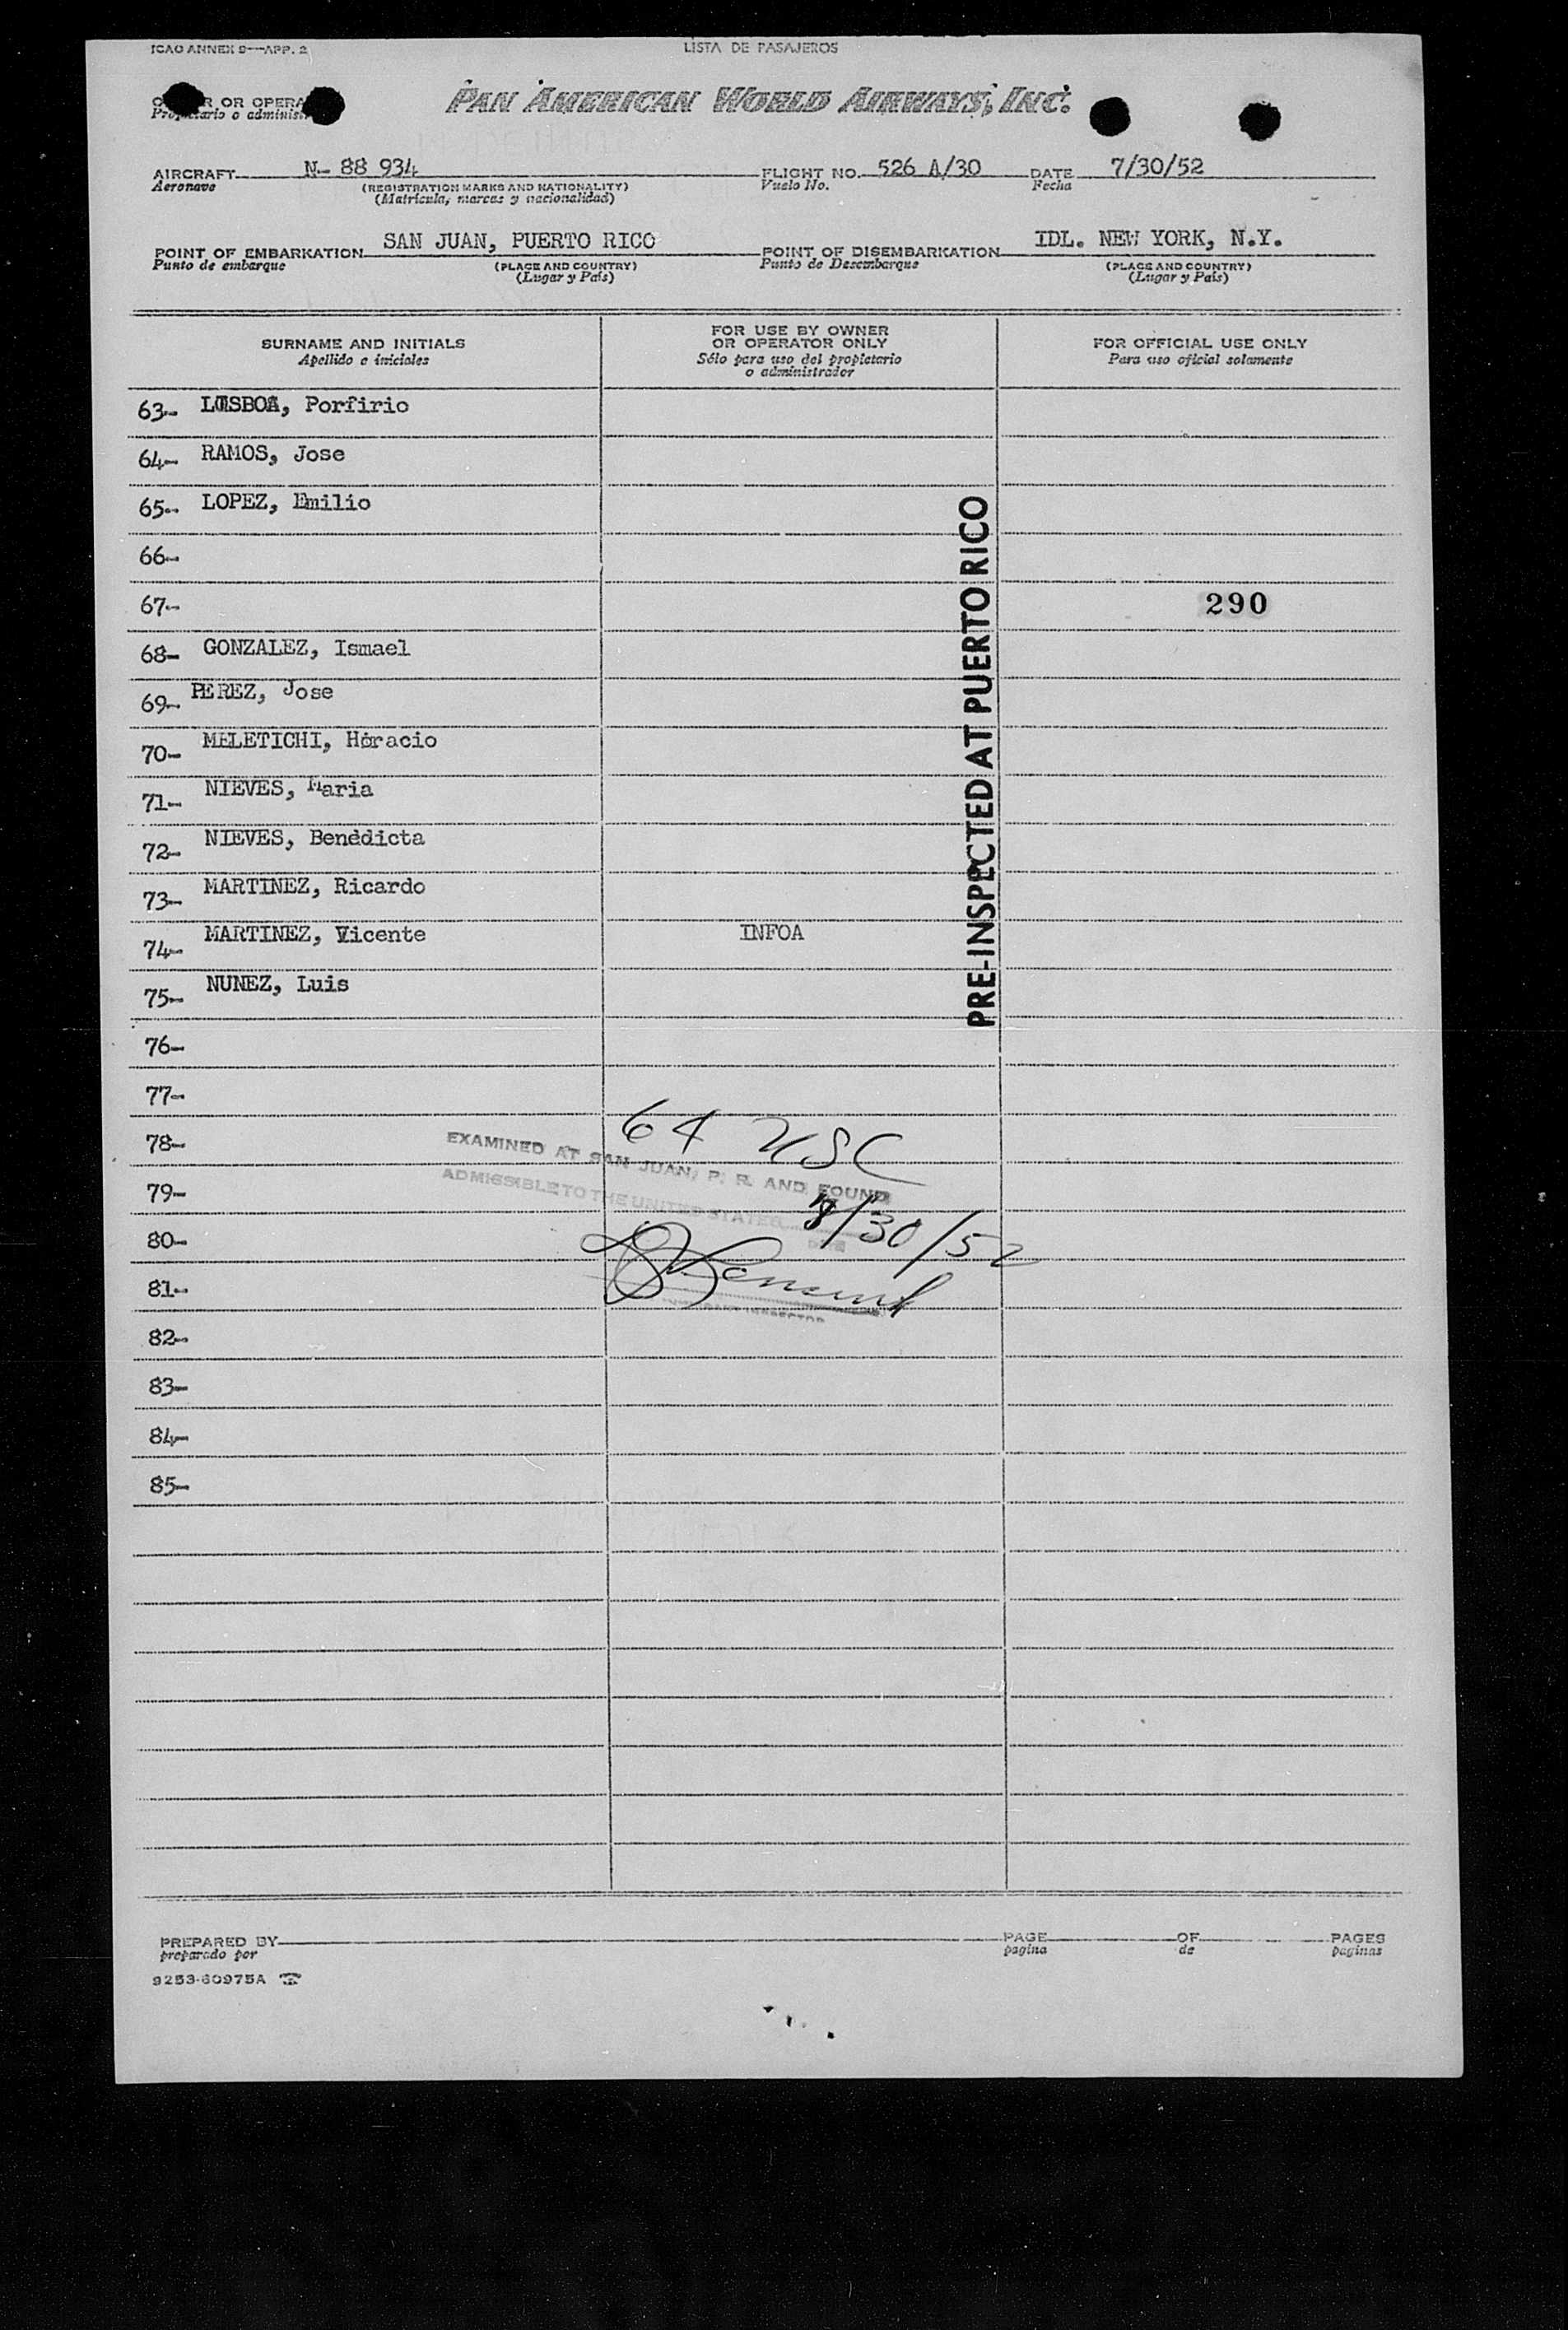 ICAO ANNEX 9—APP. 2
LISTA DE PASAJEROS
PAN AMERICAN WORLD AIRWAYS, INC.
OR OPERA
Propietario o administ
AIRCRAFT N- 88 934 FLIGHT NO. 526 A/30 DATE 7/30/52
Aeronave (REGISTRATION MARKS AND NATIONALITY) Vuelo No. Fecha
(Matricula, marcas y nacionalidad)
POINT OF EMBARKATION SAN JUAN, PUERTO RICO POINT OF DISEMBARKATION IDL. NEW YORK, N.Y.
Punto de embarque (PLACE AND COUNTRY) Punto de Desembarque (PLACE AND COUNTRY)
(Lugar y País) (Lugar y País)
SURNAME AND INITIALS
Apellido e iniciales
FOR USE BY OWNER
OR OPERATOR ONLY
Sólo para uso del propietario
o administrador
FOR OFFICIAL USE ONLY
Para uso oficial solamente
63- LUISBOA, Porfirio
64- RAMOS, Jose
65- LOPEZ, Emilio
66-
67- 290
68- GONZALEZ, Ismael
69- PEREZ, Jose
70- MELETICHI, Horacio
71- NIEVES, Maria
72- NIEVES, Benedicta
73- MARTINEZ, Ricardo
74- MARTINEZ, Vicente INFOA
75- NUNEZ, Luis
PRE-INSPECTED AT PUERTO RICO
76-
77-
78-
64 USC
EXAMINED AT SAN JUAN, P. R. AND FOUND
79-
ADMISSIBLE TO THE UNITED STATES
7/30/52
DATE
80-
81-
IMMIGRANT INSPECTOR
82-
83-
84-
85-
PREPARED BY PAGE OF PAGES
preparado por pagina de paginas
9253-60975A